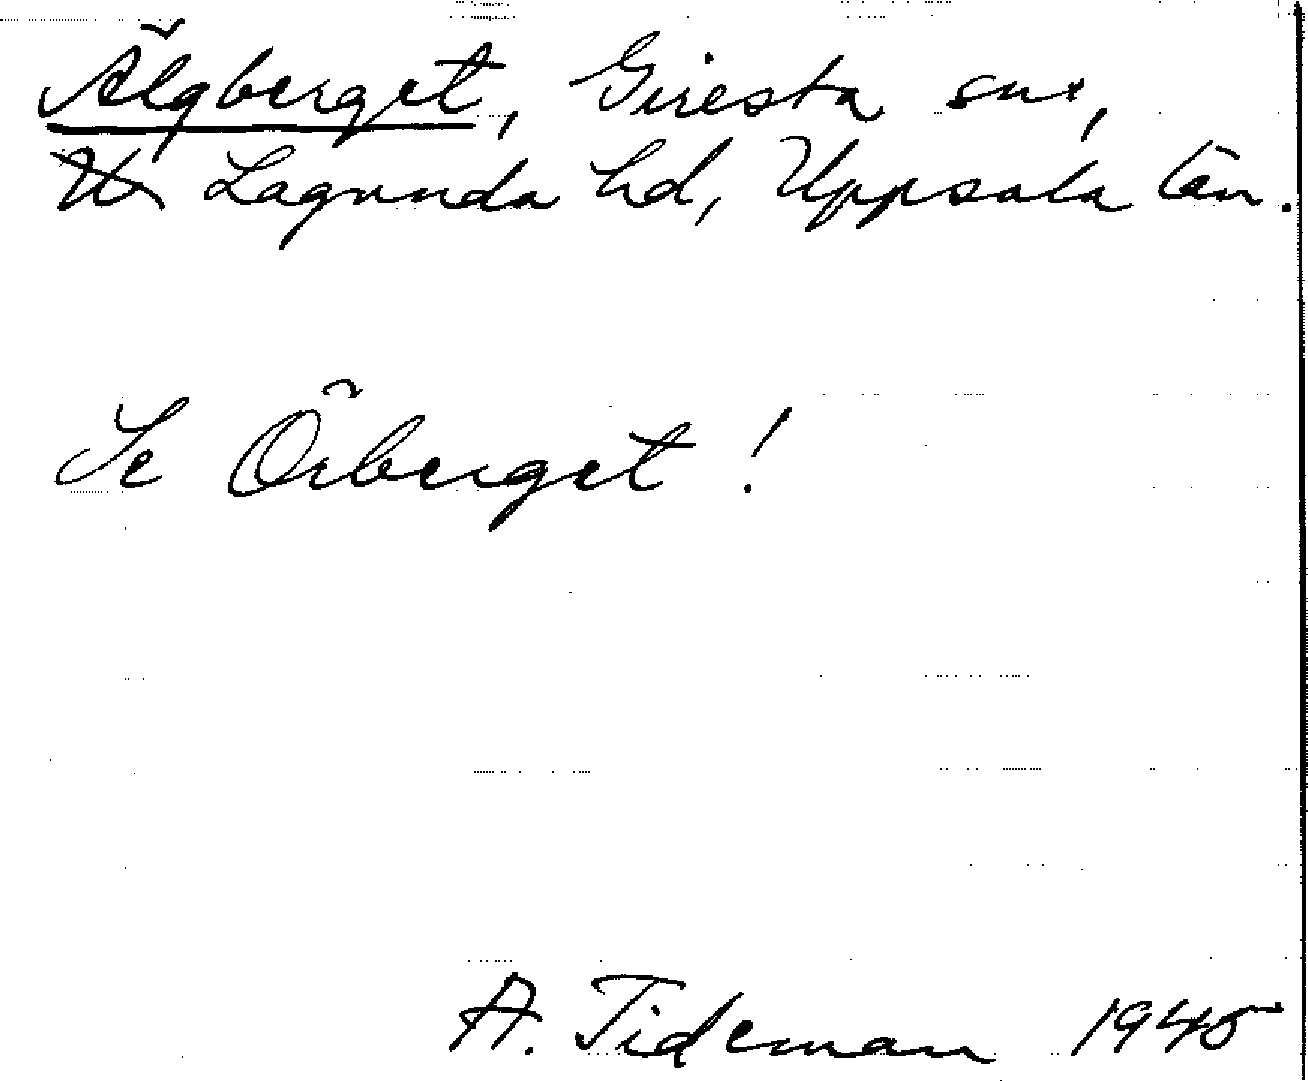 Älgberget, Giresta sn,
Lagunda hd, Uppsala län.
Se Örberget!
A. Tideman 1945